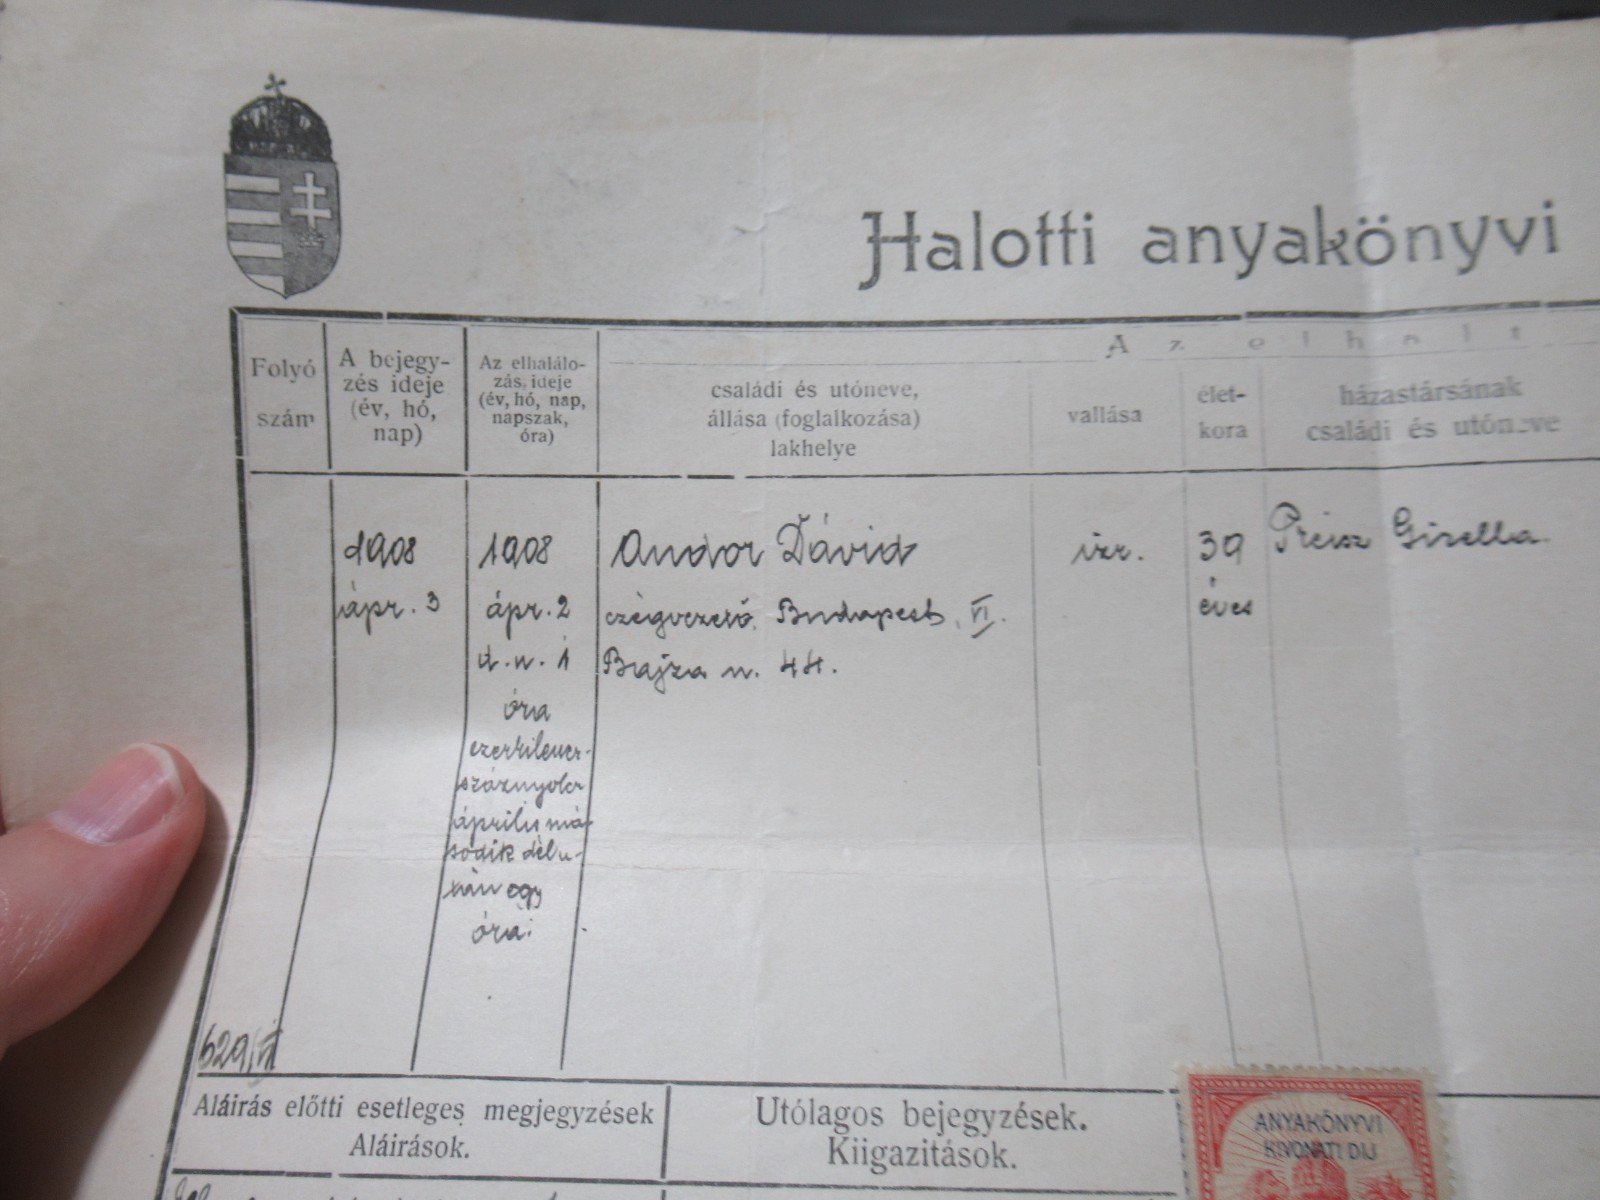 Halotti anyakönyvi
Az elhalt
Folyó
szám
A bejegy-
zés ideje
(év, hó,
nap)
Az elhalálo-
zás ideje
(év, hó, nap,
napszak,
óra)
családi és utóneve,
állása (foglalkozása)
lakhelye
vallása
élet-
kora
házastársának
családi és utóneve
629/VI
1908
ápr. 3
1908
ápr. 2
d. u. 1
óra
ezerkilencz-
száznyolcz
április má-
sodik délu-
tán egy
óra
Andor Dávid
czégvezető, Budapest, VI.
Bajza u. 44.
izr.
39
éves
Preisz Gizella
Aláírás előtti esetleges megjegyzések
Aláirások.
Utólagos bejegyzések.
Kiigazitások.
ANYAKÖNYVI
KIVONATI DIJ